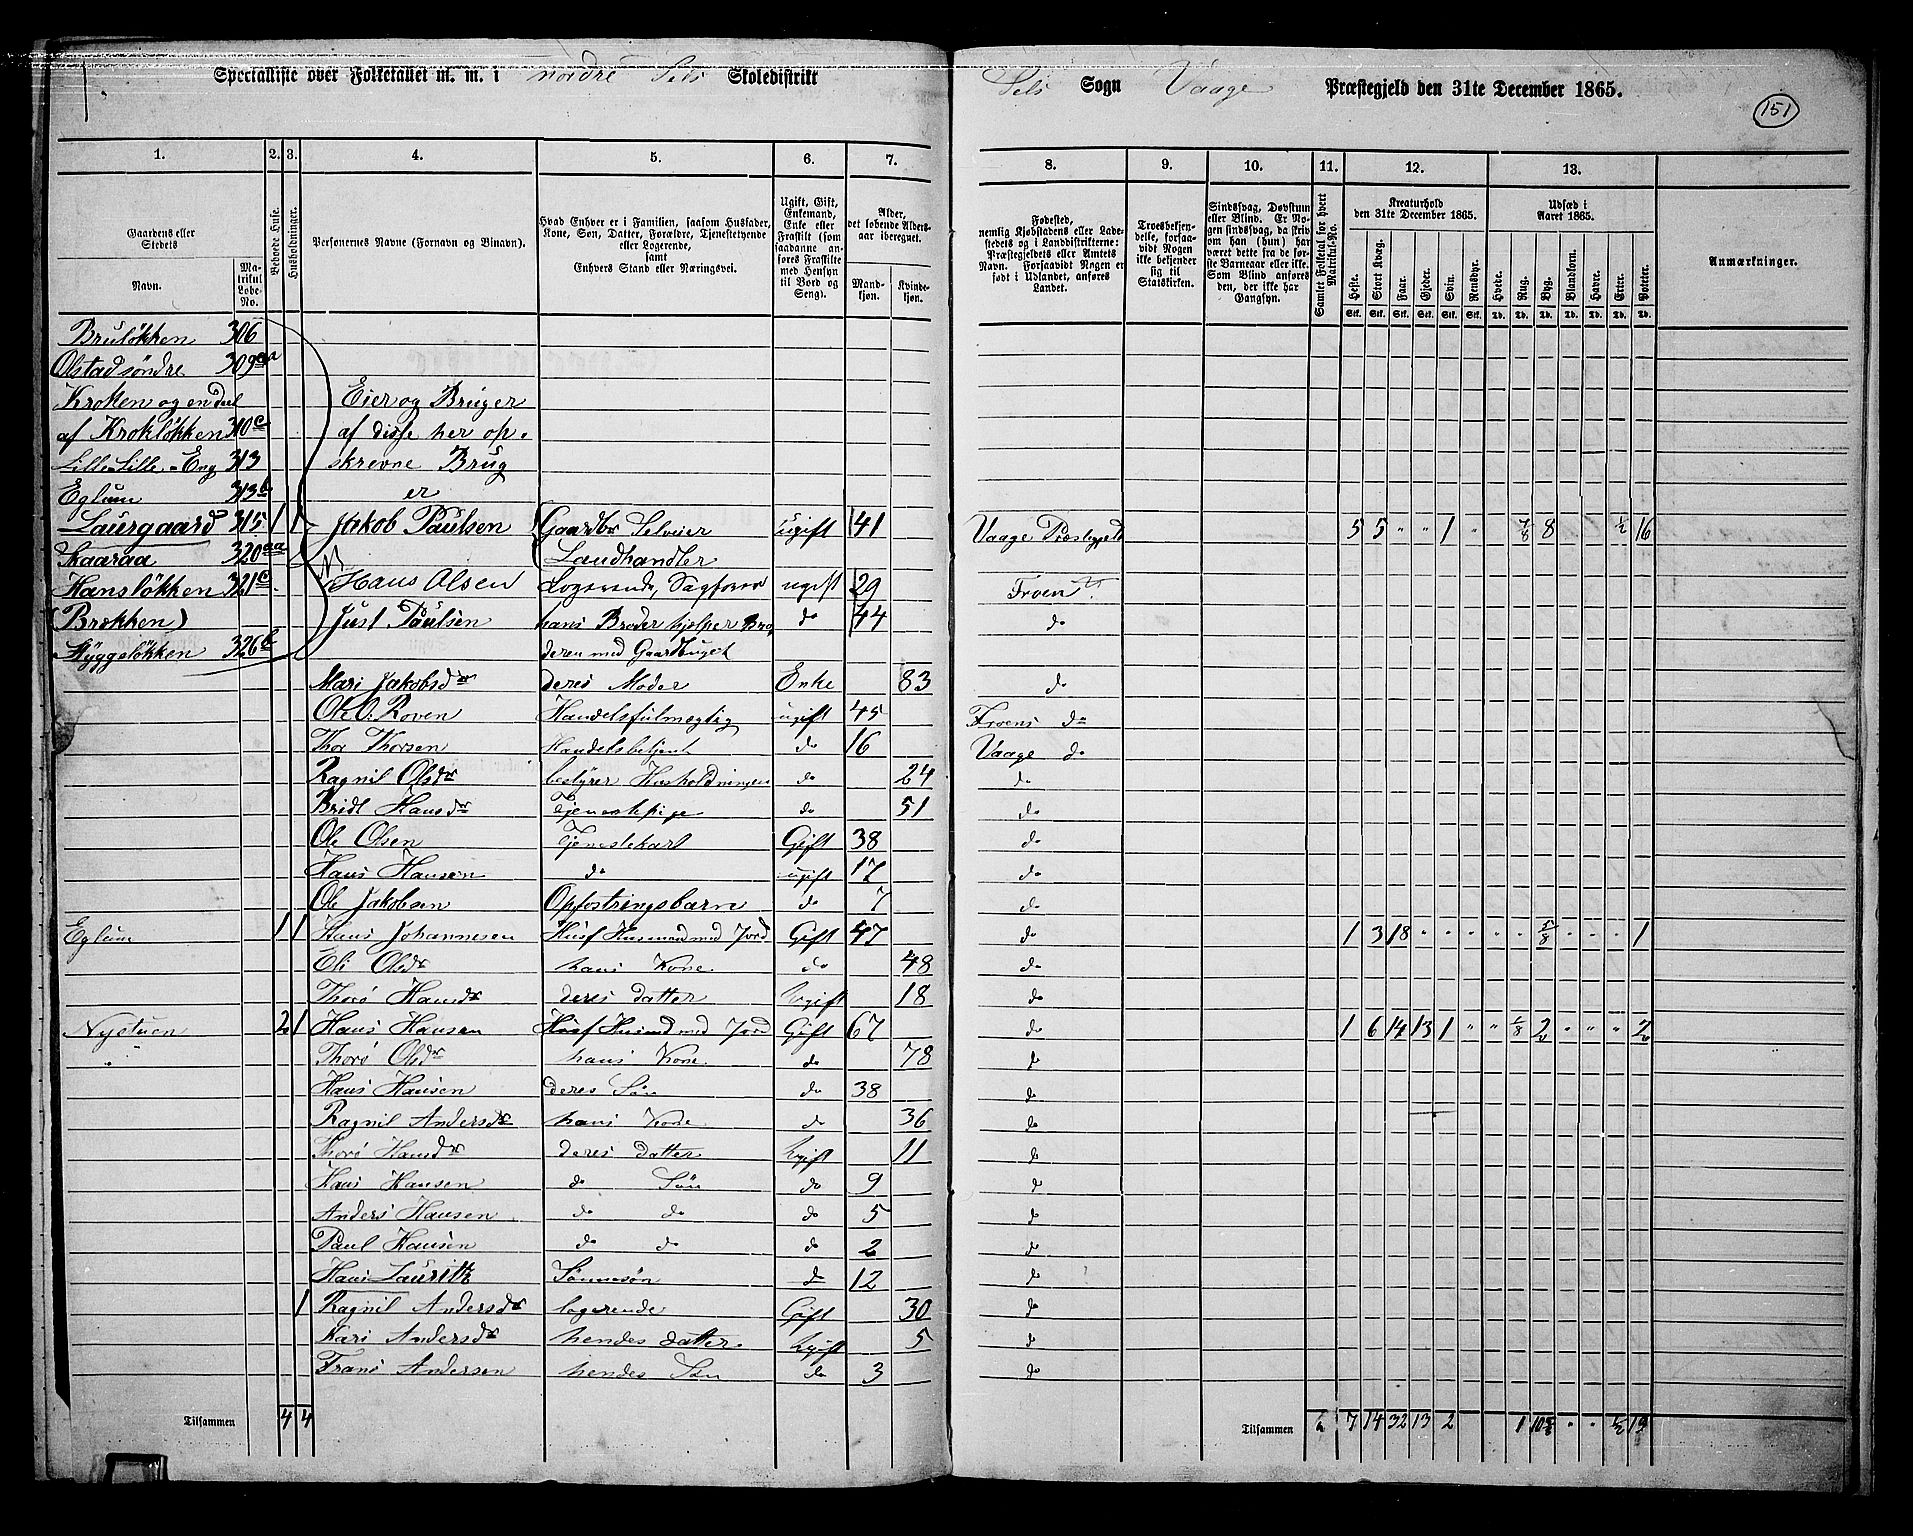 Specialliste over Folketallet m. m. i nordre Sels Skoledistrikt
Sels Sogn Vaage Præstegjeld den 31te December 1865.
151
1. 2. 3. 4. 5. 6. 7. 8. 9. 10. 11. 12. 13.
Gaardens eller Stedets
Navn.
Matrikul Løbe-No.
Beboede Huse.
Husholdninger.
Personernes Navne (Fornavn og Binavn).
Hvad Enhver er i Familien, saasom Husfader, Kone, Søn, Datter, Forældre, Tjenestetyende eller Logerende, samt Enhvers Stand eller Næringsvei.
Ugift, Gift, Enkemand, Enke eller Fraskilt (som saadanne anføres Fraskilte med Hensyn til Bord og Seng).
Alder, det løbende Aldersaar iberegnet.
Mandkjøn. Kvindekjøn.
Fødested, nemlig Kjøbstadens eller Ladestedets og i Landdistrikterne: Præstegjeldets eller Amtets Navn. Forsaavidt Nogen er født i Udlandet, anføres Landet.
Troesbekjendelse, forsaavidt Nogen ikke bekjender sig til Statskirken.
Sindssvag, Døvstum eller Blind. Er Nogen sindssvag, da skrives om han (hun) har været dette fra de første Barneaar eller ikke. Som Blind anføres den, der ikke har Gangsyn.
Samlet Folketal for hvert Matrikul-No.
Kreaturhold den 31te December 1865.
Heste. Stort Kvæg. Faar. Gjeder. Svin. Rensdyr.
Udsæd i Aaret 1865.
Hvede. Rug. Byg. Blandkorn. Havre. Erter. Poteter.
Anmærkninger.
Stk. Stk. Stk. Stk. Stk. Stk. Td. Td. Td. Td. Td. Td. Td.
Bruløkken 306
Olstad søndre 309aa
Kroken og en deel Eier og Bruger
af Krokløkken 310c af disse her op-
Lille-Lille-Eng 313 skrevne Brug
Eglum 313b er
Laurgaard 315 1 1 Jakob Paulsen Gaardbr Selveier ugift 41 Vaage Præstegjeld 5 5 " " 1 " 7/8 8 1/2 16
Skaaraa 320aa Landhandler
Hansløkken 321c Hans Olsen Logerende, Sagfører ugift 29 Froen
(Brokken) Just Paulsen hans Broder hjelper Bro- do 44 do
Styggeløkken 326b deren med Gaardbruget
Mari Jakobsdr deres Moder Enke 83 do
Ole O. Roven Handelsfulmegtig ugift 45 Froens do
Thor Thorsen Handelsbetjent do 16 Vaage do
Ragnil Olsdr bestyrer Husholdningen do 24 do
Bridt Hansdr Tjenestepige do 51 do
Ole Olsen Tjenestekarl Gift 38 do
Hans Hansen do ugift 17 do
Ole Jakobsen Opfostringsbarn do 7 do
Eglum 1 1 Hans Johannesen Husf Husmand med Jord Gift 47 do 1 3 18 " " " " " 5/8 " " " 1
Eli Olsdr hans Kone do 48 do
Thorø Hansdr deres datter Ugift 18 do
Nystuen 2 1 Hans Hansen Husf Husmd med Jord Gift 67 do 1 6 14 13 1 " " 1/8 2 " " " 2
" Thorø Olsdr hans Kone do 78 do
Hans Hansen deres Søn do 38 do
Ragnil Andersdr hans Kone do 36 do
Thorø Hansdr deres datter Ugift 11 do
Hans Hansen do Søn do 9 do
Anders Hansen do do do 5 do
Paul Hansen do do do 2 do
Hans Lauritz Sønnesøn do 12 do
1 Ragnil Andersdr logerende Gift 30 do
Kari Andersdr hendes datter Ugift 5 do
Frans Andersen hendes Søn do 3 do
Tilsammen 4 4
Tilsammen 7 14 32 13 2 1 " " 1/2 19